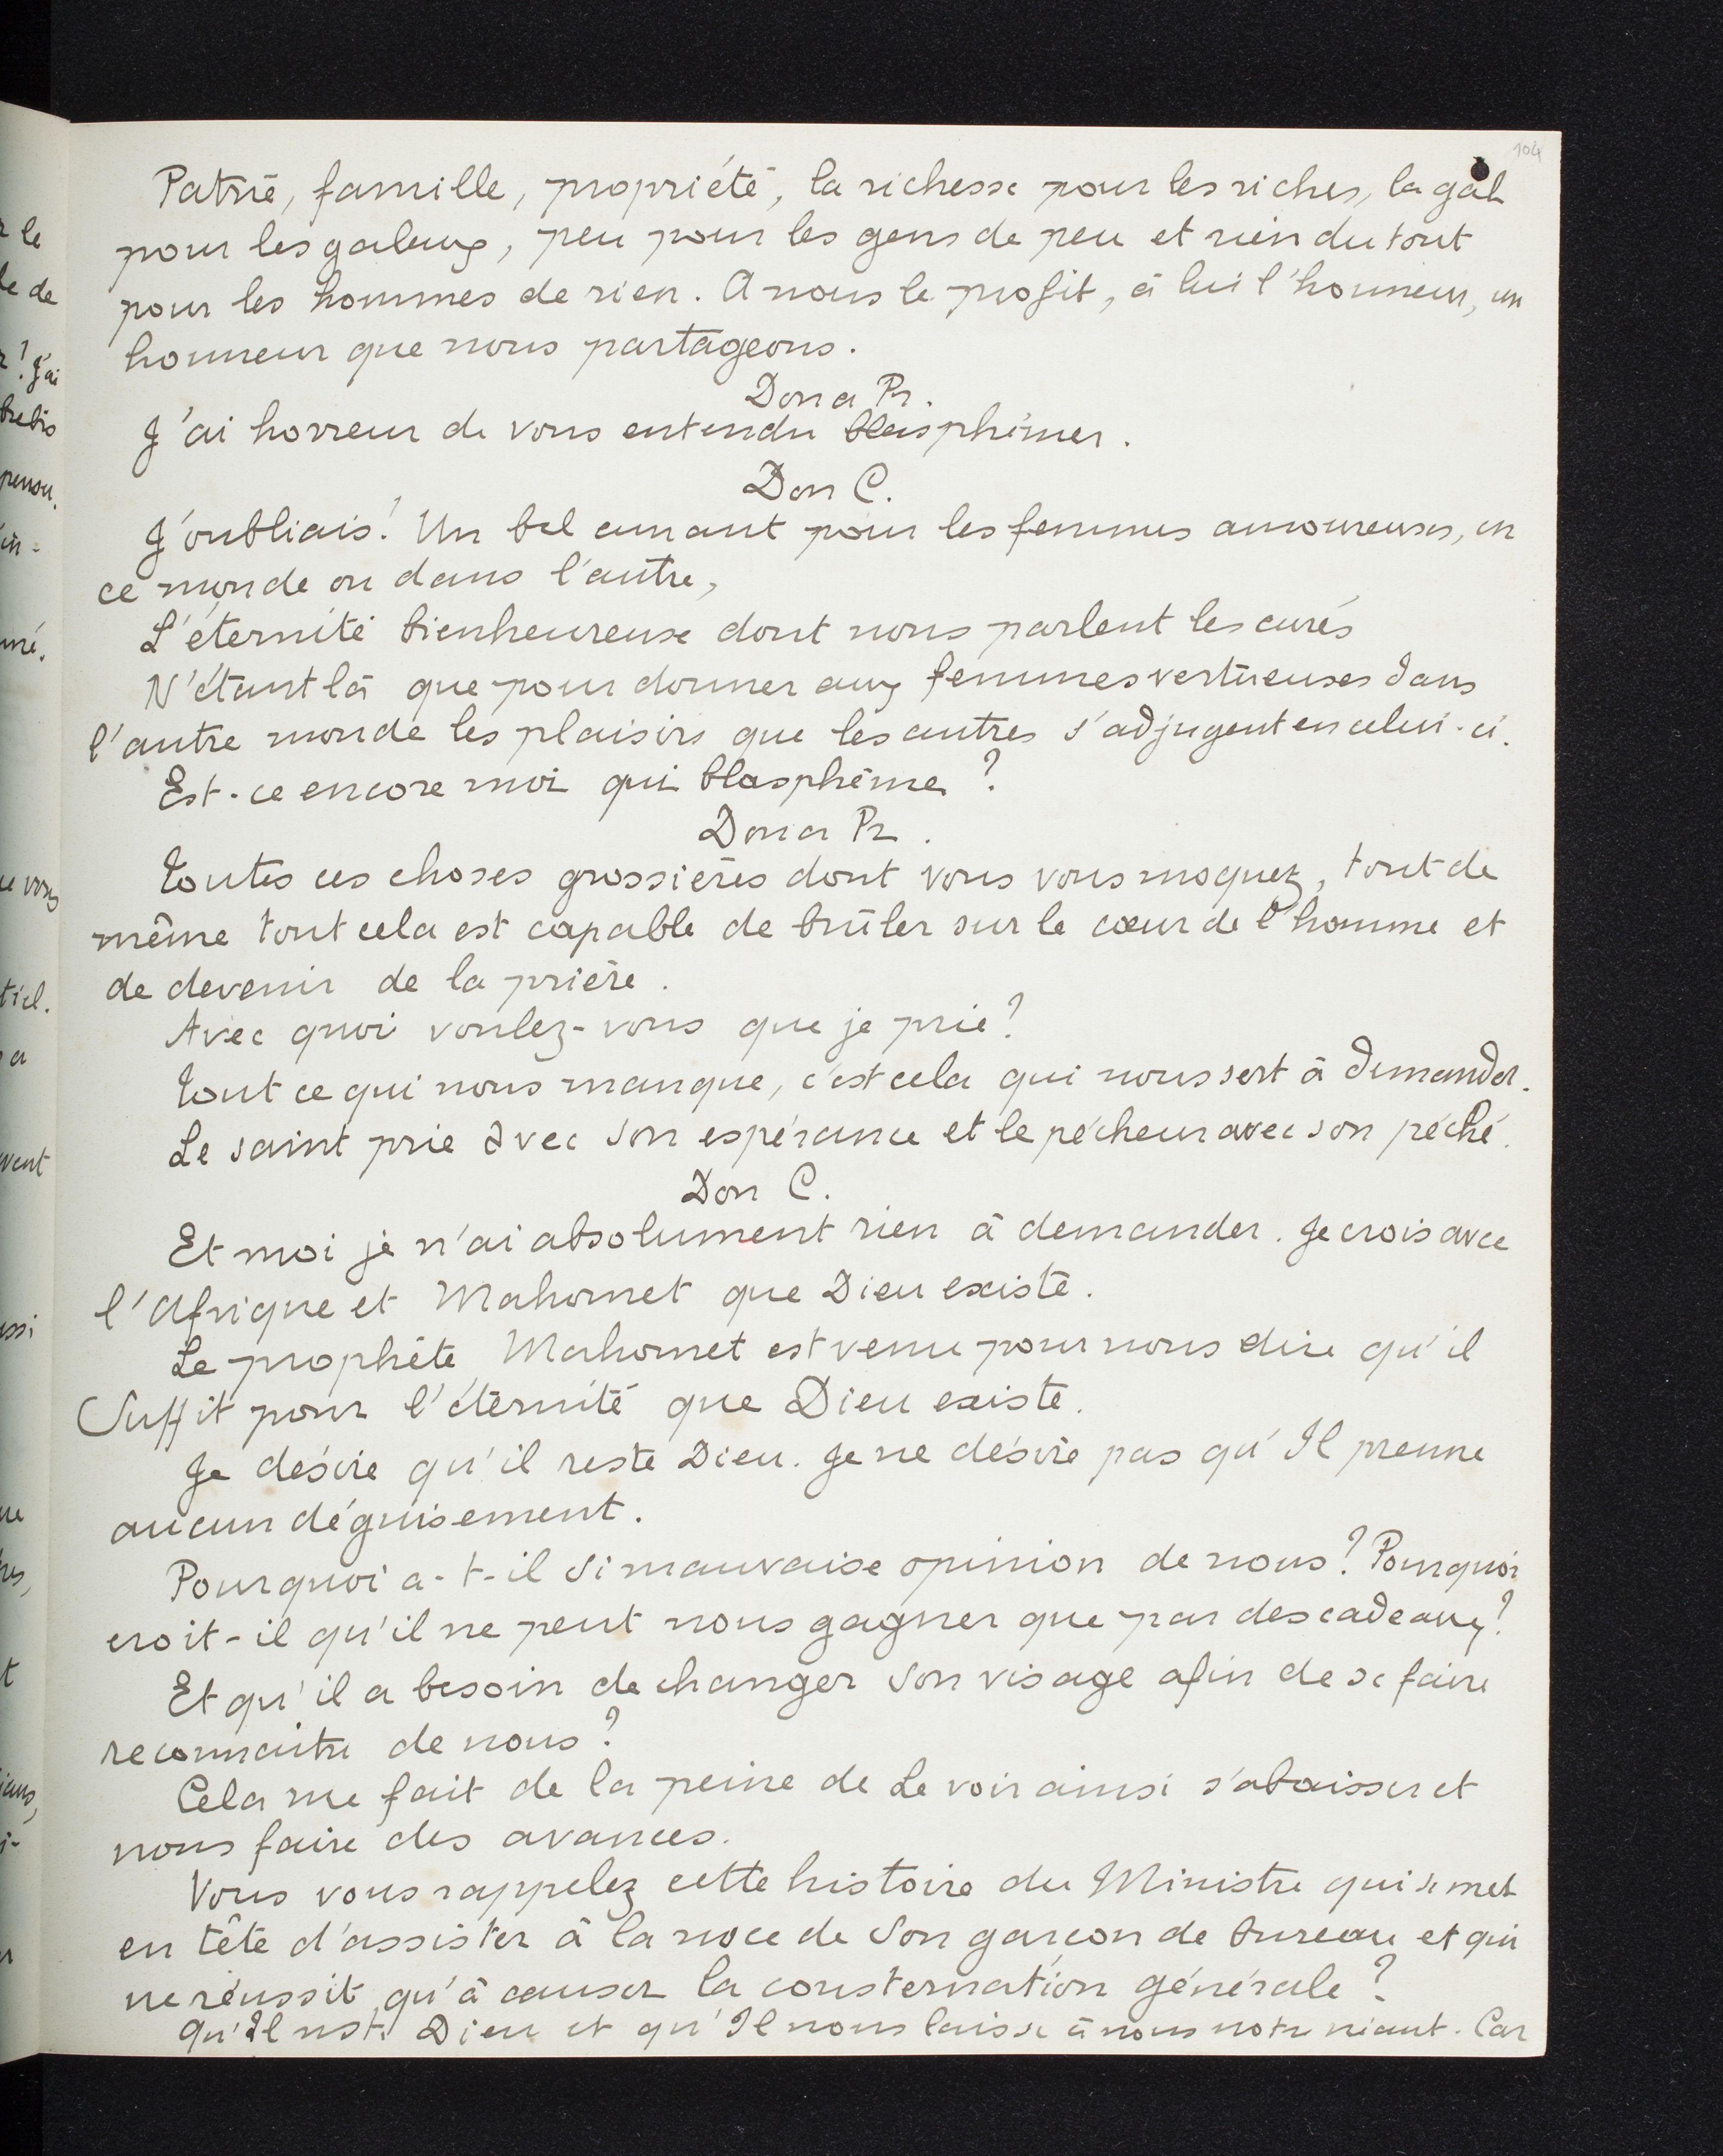 104
Patrie, famille, propriété, la richesse pour les riches, la gale
pour les galeux, peu pour les gens de peu et rien du tout
pour les hommes de rien. A nous le profit, à lui l'honneur, un
honneur que nous partageons.
Dona Pr.
J'ai horreur de vous entendre blasphémer.
Don C.
J'oubliais! Un bel amant pour les femmes amoureuses, en
ce monde ou dans l'autre,
L'éternité bienheureuse dont nous parlent les curés
N'étant là que pour donner aux femmes vertueuses dans
l'autre monde les plaisirs que les autres s'adjugent en celui-ci.
Est-ce encore moi qui blasphème?
Dona Pr.
Toutes ces choses grossières dont vous vous moquez, tout de
même tout cela est capable de brûler sur le cœur de l'homme et
de devenir de la prière.
Avec quoi voulez-vous que je prie?
Tout ce qui nous manque, c'est cela qui nous sert à demander.
Le saint prie avec son espérance et le pécheur avec son péché.
Don C.
Et moi je n'ai absolument rien à demander. Je crois avec
l'Afrique et Mahomet que Dieu existe.
Le prophète Mahomet est venu pour nous dire qu'il
Suffit pour l'éternité que Dieu existe.
Je désire qu'il reste Dieu. Je ne désire pas qu'Il prenne
aucun déguisement.
Pourquoi a-t-il si mauvaise opinion de nous? Pourquoi
croit-il qu'il ne peut nous gagner que par des cadeaux?
Et qu'il a besoin de changer son visage afin de se faire
reconnaitre de nous?
Cela me fait de la peine de Le voir ainsi s'abaisser et
nous faire des avances.
Vous vous rappelez cette histoire du Ministre qui se met
en tête d'assister à la noce de son garçon de bureau et qui
ne réussit qu'à causer la consternation générale?
Qu'Il reste Dieu et qu'Il nous laisse à nous notre néant. Car